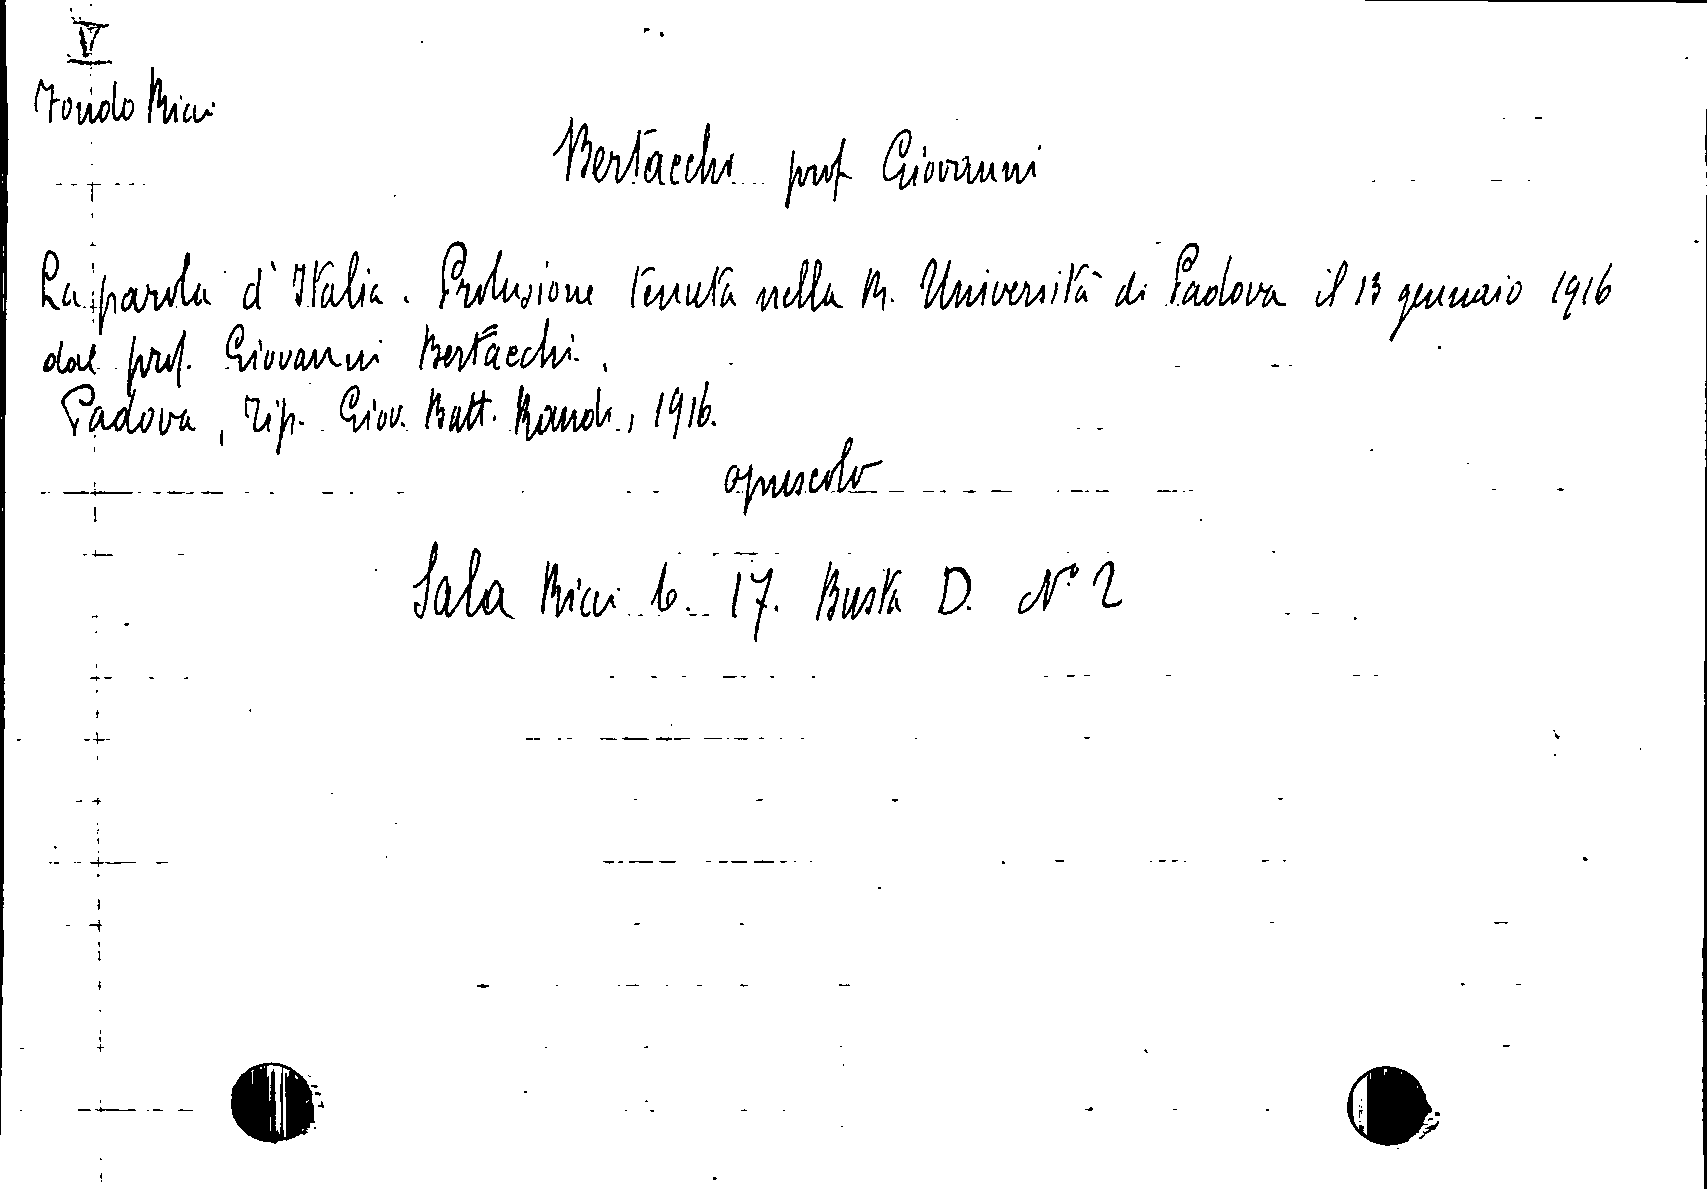 V
Fondo Ricci
Bertacchi prof Giovanni
La parola d'Italia. Prolusione tenuta nella R. Università di Padova il 13 gennaio 1916
dal prof. Giovanni Bertacchi.
Padova, Tip. Giov. Batt. Randi, 1916.
opuscolo
Sala Ricci b. 17. Busta D. N° 2